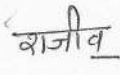 राजीव